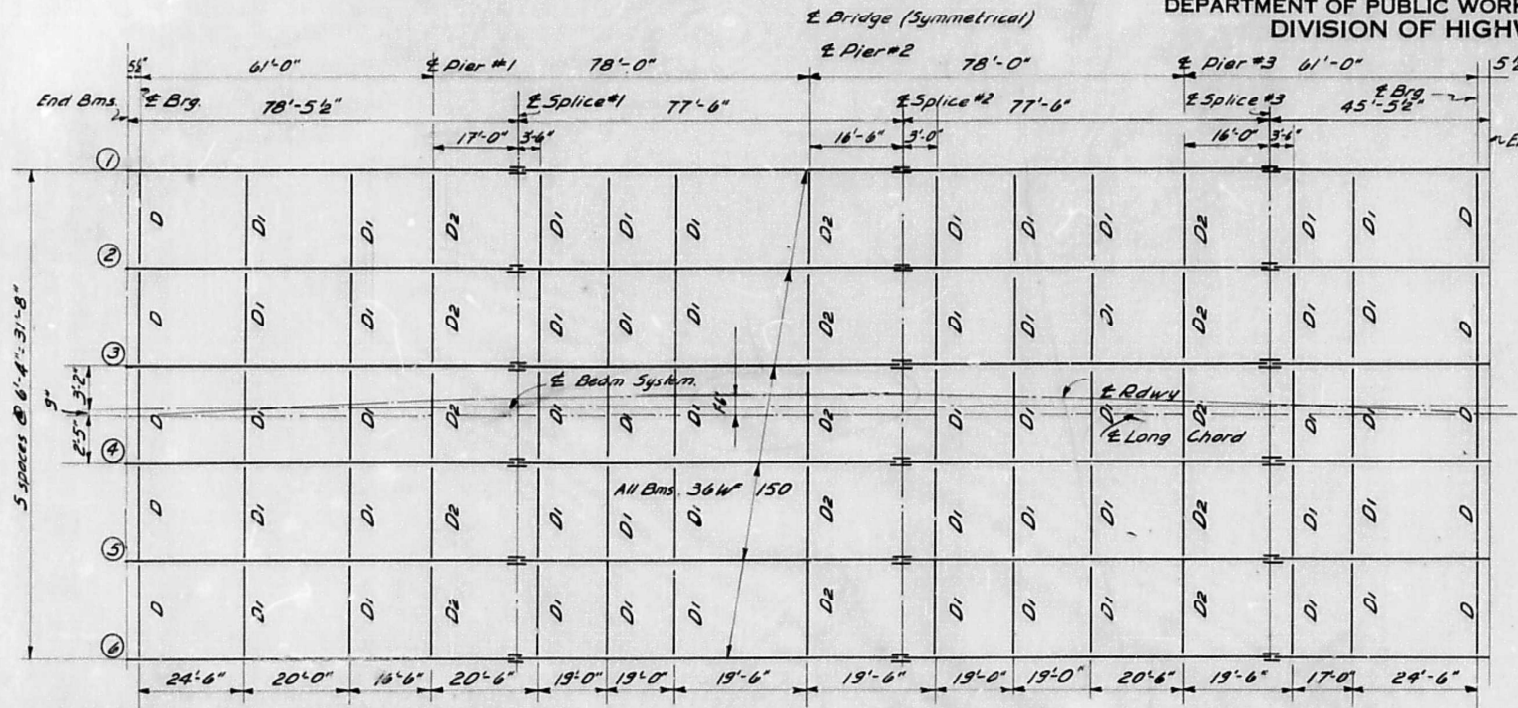 DEPARTMENT OF PUBLIC WORK
DIVISION OF HIGHW
℄ Bridge (Symmetrical)
℄ Pier #2
5½" 61'-0" ℄ Pier #1 78'-0" 78'-0" ℄ Pier #3 61'-0" 5½
End Bms. ℄ Brg. 78'-5½" ℄ Splice #1 77'-6" ℄ Splice #2 77'-6" ℄ Splice #3 45'-5½" ℄ Brg
17'-0" 3'-6" 16'-6" 3'-0" 16'-0" 3'-6"
1
D D1 D1 D2 D1 D1 D1 D2 D1 D1 D1 D2 D1 D1 D
2
D D1 D1 D2 D1 D1 D1 D2 D1 D1 D1 D2 D1 D1 D
3
5 spaces @ 6'-4" = 31'-8"
9" 3'-2"
2'-5"
℄ Beam System.
℄ Rdwy
D D1 D1 D2 D1 D1 D1 D2 D1 D1 D1 D2 D1 D1 D
℄ Long Chord
4
All Bms. 36 WF 150
D D1 D1 D2 D1 D1 D1 D2 D1 D1 D1 D2 D1 D1 D
5
D D1 D1 D2 D1 D1 D1 D2 D1 D1 D1 D2 D1 D1 D
6
24'-6" 20'-0" 16'-6" 20'-6" 19'-0" 19'-0" 19'-6" 19'-6" 19'-0" 19'-0" 20'-6" 19'-6" 17'-0" 24'-6"